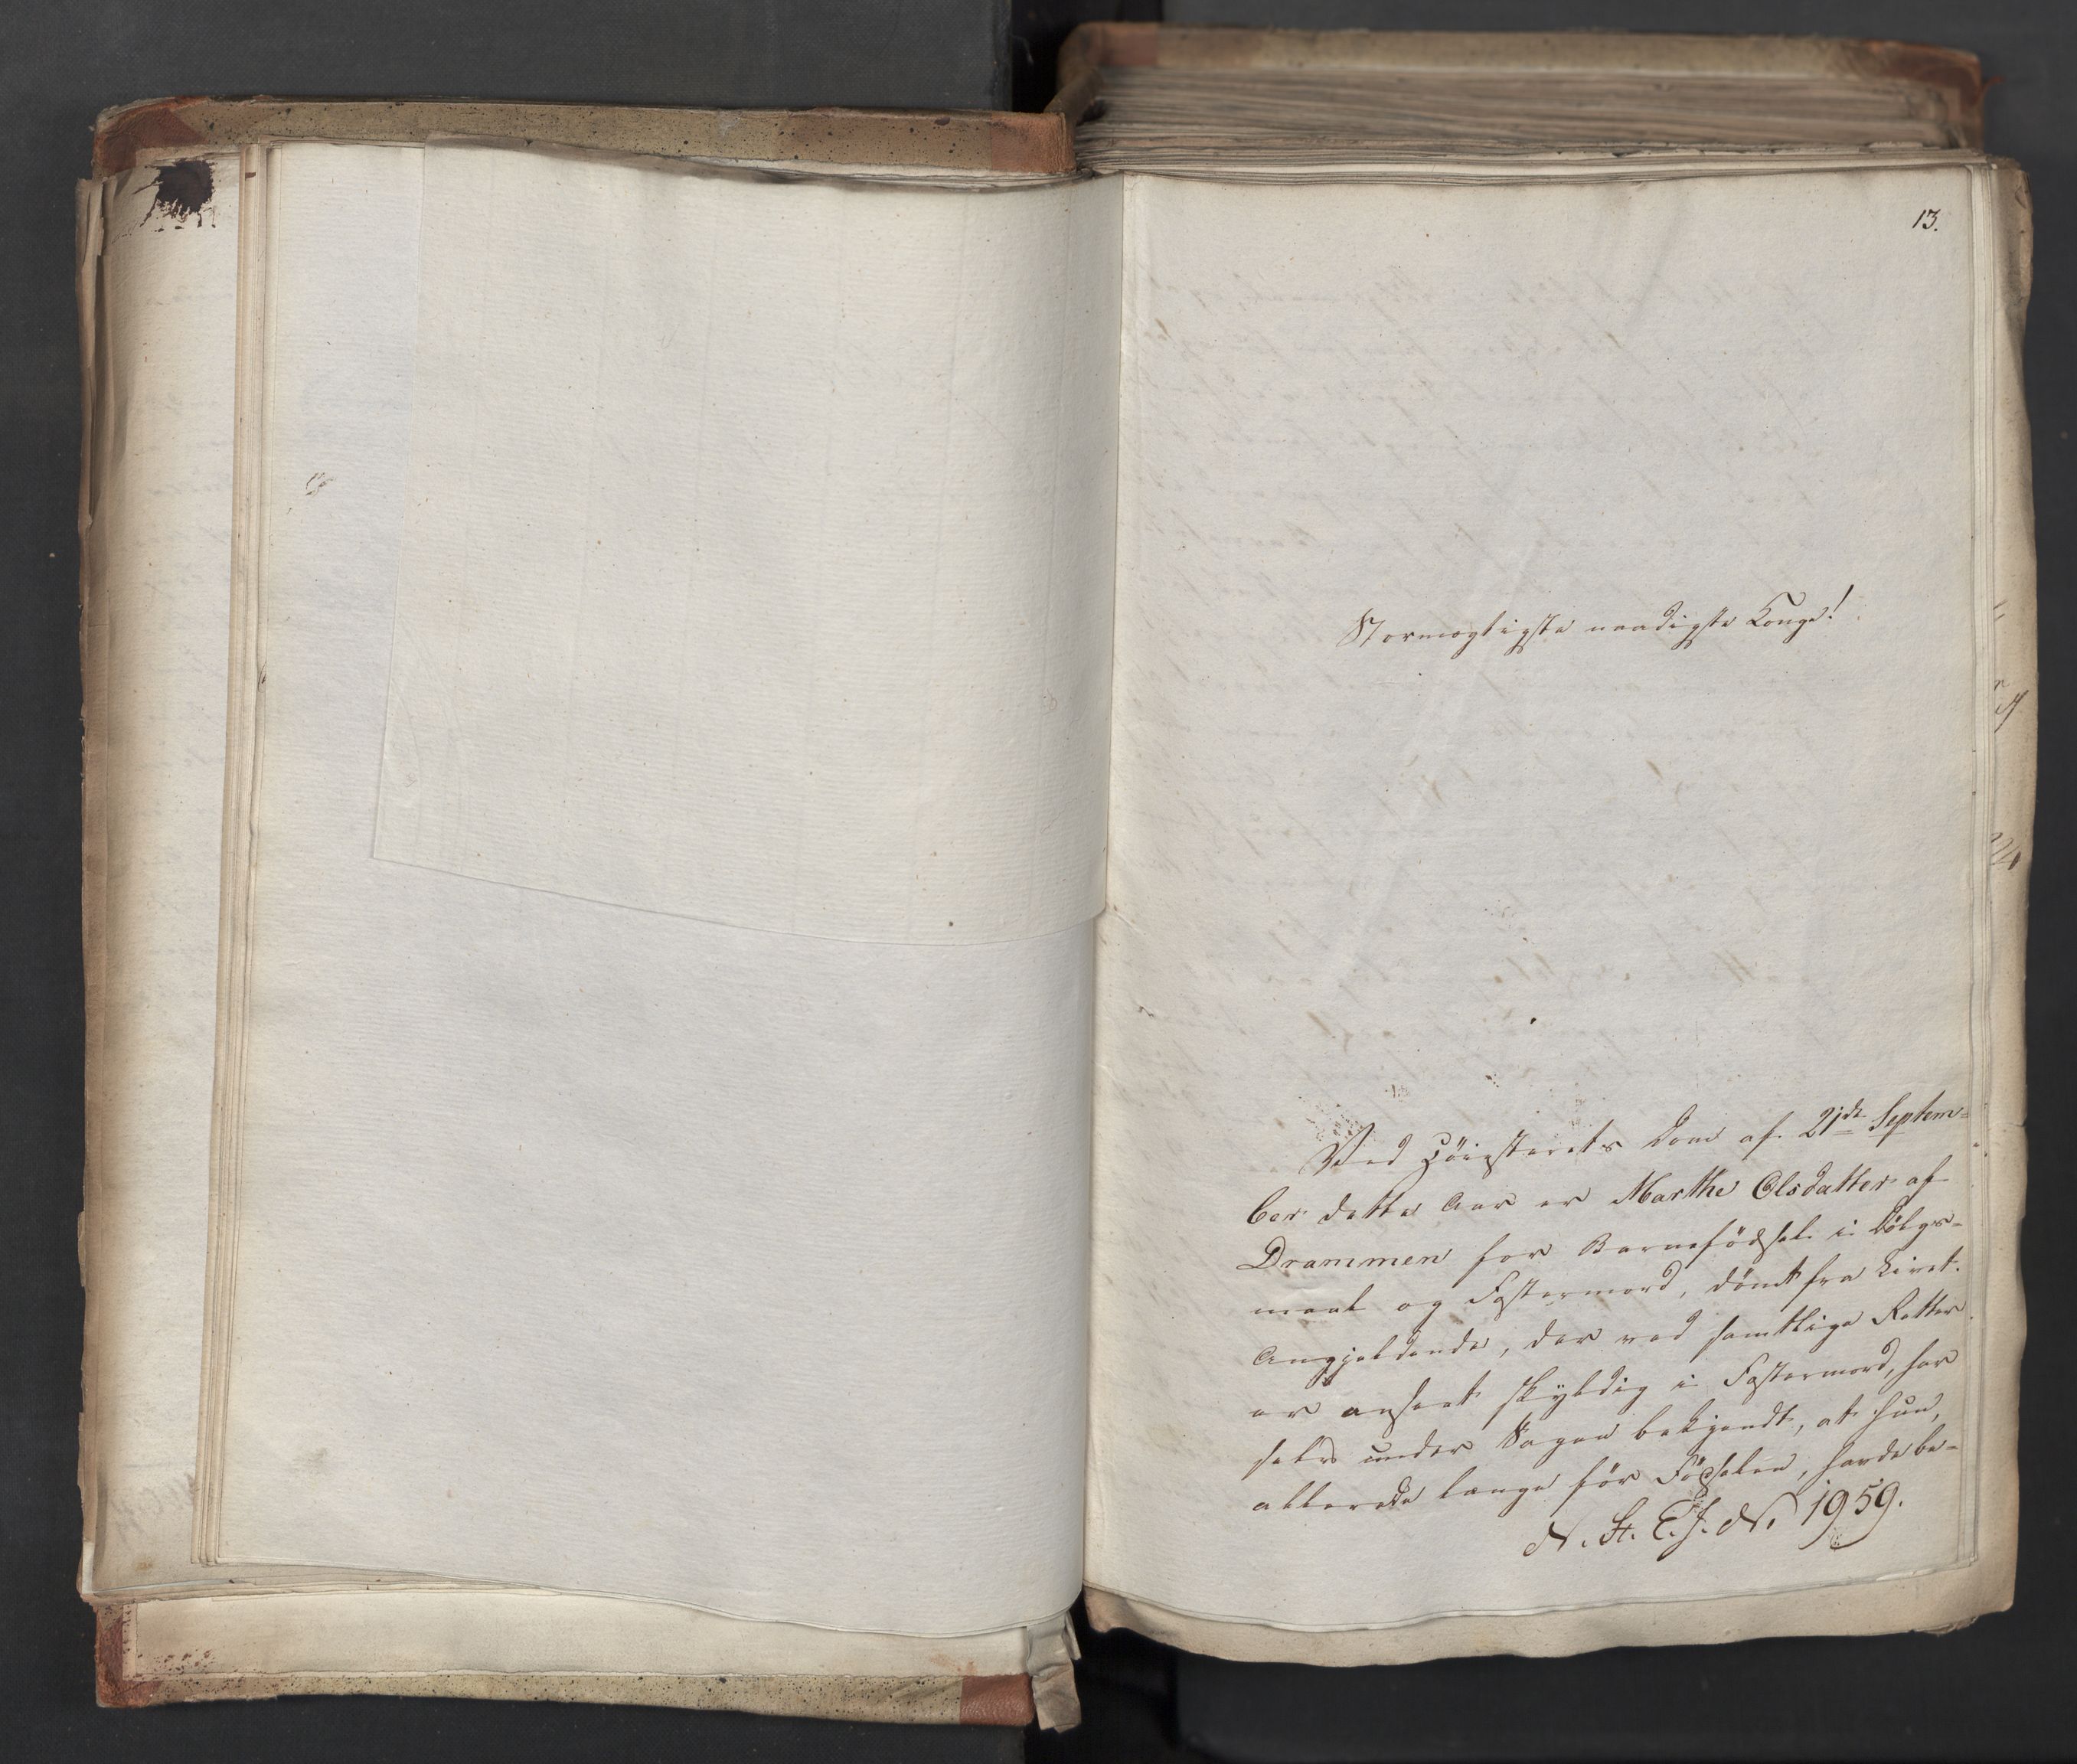 13.
Stormægtigste naadigste Konge!
Ved Høiesterets Dom af 21de Septem-
ber dette Aar er Marthe Olsdatter af
Drammen for Barnefødsel i Dølgs-
maal og Fostermord, dømt fra Livet.
Angjeldende, der ved samtlige Retter
er anseet skyldig i Fostermord, har
selv under Sagen bekjendt, at hun,
allerede længe før Fødselen, havde be-
N. St. E. J. No 1959.